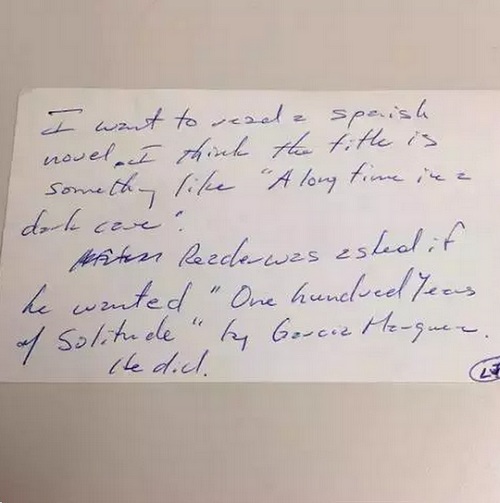 I want to read a spanish
novel. I think the title is
something like "A long time in a
dark cave".
Reader was asked if
he wanted "One hundred Years
of Solitude" by Garcia Marquez.
He did.